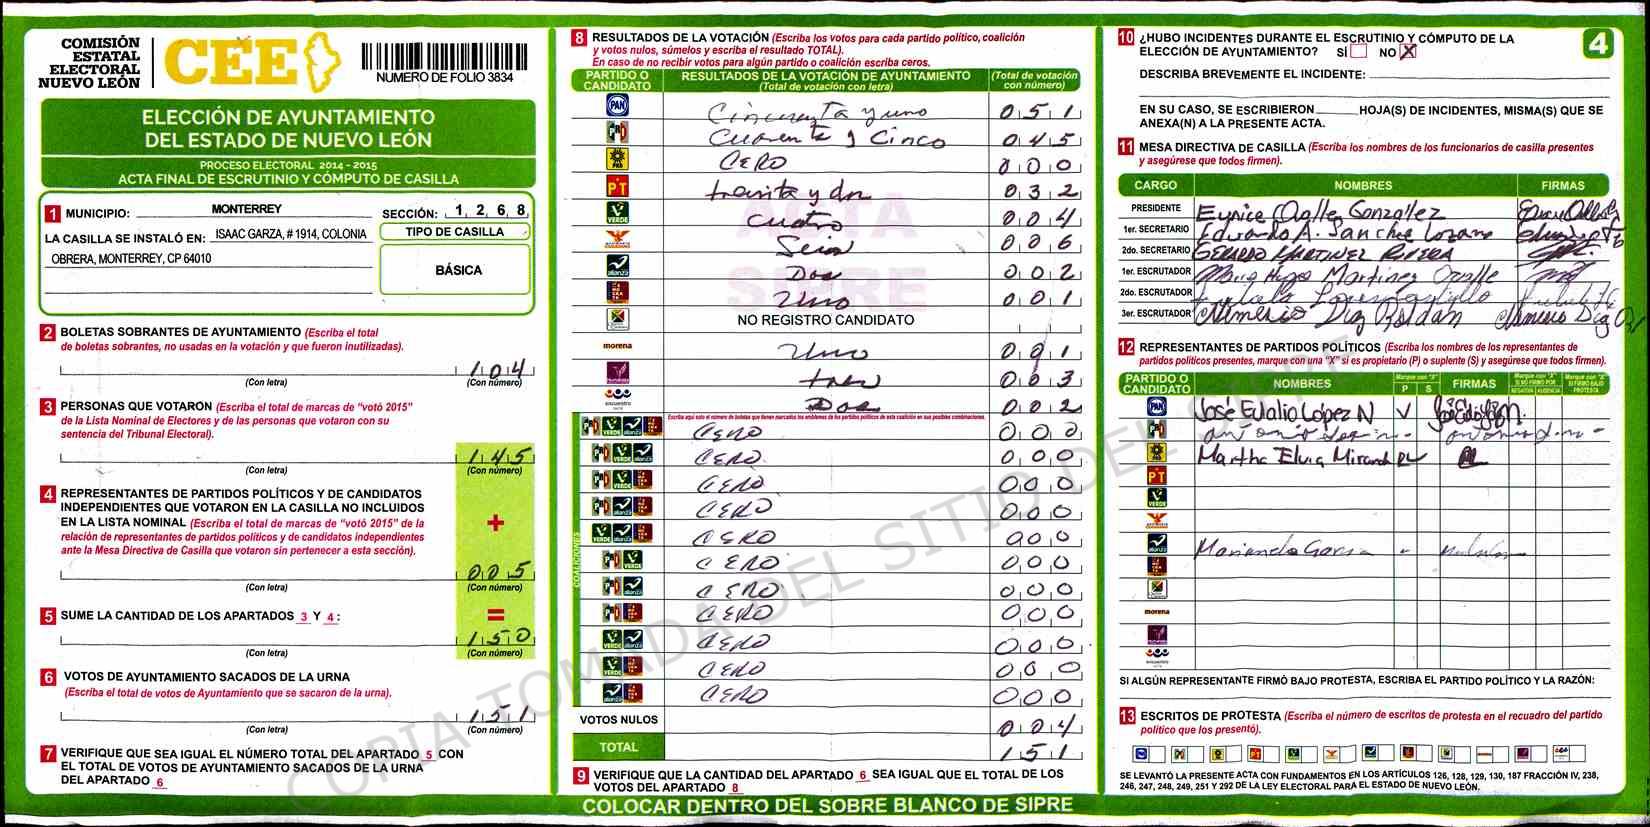 COMISIÓN
ESTATAL
ELECTORAL
NUEVO LEÓN
CEE
NUMERO DE FOLIO 3834
ELECCIÓN DE AYUNTAMIENTO
DEL ESTADO DE NUEVO LEÓN
PROCESO ELECTORAL 2014 - 2015
ACTA FINAL DE ESCRUTINIO Y CÓMPUTO DE CASILLA
1 MUNICIPIO: MONTERREY SECCIÓN: 1 2 6 8
LA CASILLA SE INSTALÓ EN: ISAAC GARZA, # 1914, COLONIA
OBRERA, MONTERREY, CP 64010
TIPO DE CASILLA
BÁSICA
2 BOLETAS SOBRANTES DE AYUNTAMIENTO (Escriba el total
de boletas sobrantes, no usadas en la votación y que fueron inutilizadas).
1 0 4
(Con letra) (Con número)
3 PERSONAS QUE VOTARON (Escriba el total de marcas de "votó 2015"
de la Lista Nominal de Electores y de las personas que votaron con su
sentencia del Tribunal Electoral).
1 4 5
(Con letra) (Con número)
4 REPRESENTANTES DE PARTIDOS POLÍTICOS Y DE CANDIDATOS
INDEPENDIENTES QUE VOTARON EN LA CASILLA NO INCLUIDOS
EN LA LISTA NOMINAL (Escriba el total de marcas de "votó 2015" de la
relación de representantes de partidos políticos y de candidatos independientes
ante la Mesa Directiva de Casilla que votaron sin pertenecer a esta sección).
+
0 0 5
(Con letra) (Con número)
5 SUME LA CANTIDAD DE LOS APARTADOS 3 Y 4:
=
1 5 0
(Con letra) (Con número)
6 VOTOS DE AYUNTAMIENTO SACADOS DE LA URNA
(Escriba el total de votos de Ayuntamiento que se sacaron de la urna).
1 5 1
(Con letra) (Con número)
7 VERIFIQUE QUE SEA IGUAL EL NÚMERO TOTAL DEL APARTADO 5 CON
EL TOTAL DE VOTOS DE AYUNTAMIENTO SACADOS DE LA URNA
DEL APARTADO 6
8 RESULTADOS DE LA VOTACIÓN (Escriba los votos para cada partido político, coalición
y votos nulos, súmelos y escriba el resultado TOTAL).
En caso de no recibir votos para algún partido o coalición escriba ceros.
PARTIDO O CANDIDATO RESULTADOS DE LA VOTACIÓN DE AYUNTAMIENTO (Total de votación con letra) (Total de votación con número)
PAN Cincuenta y uno 0 5 1
PRD Cuarenta y Cinco 0 4 5
PRD CERO 0 0 0
PT treinta y dos 0 3 2
VERDE Cuatro 0 0 4
Seis 0 0 6
alianza Dos 0 0 2
Uno 0 0 1
NO REGISTRO CANDIDATO
morena Uno 0 0 1
tres 0 0 3
encuentro Dos 0 0 2
COALICIONES
Escriba aquí solo el número de boletas que tienen marcados los emblemas de los partidos políticos de esta coalición en sus posibles combinaciones.
CERO 0 0 0
CERO 0 0 0
CERO 0 0 0
CERO 0 0 0
CERO 0 0 0
CERO 0 0 0
CERO 0 0 0
CERO 0 0 0
CERO 0 0 0
CERO 0 0 0
CERO 0 0 0
VOTOS NULOS 0 0 4
TOTAL 1 5 1
9 VERIFIQUE QUE LA CANTIDAD DEL APARTADO 6 SEA IGUAL QUE EL TOTAL DE LOS
VOTOS DEL APARTADO 8
COLOCAR DENTRO DEL SOBRE BLANCO DE SIPRE
ACTA
SIPRE
COPIA TOMADA DEL SITIO DEL SIPRE
10 ¿HUBO INCIDENTES DURANTE EL ESCRUTINIO Y CÓMPUTO DE LA
ELECCIÓN DE AYUNTAMIENTO? SÍ NO X
4
DESCRIBA BREVEMENTE EL INCIDENTE:
EN SU CASO, SE ESCRIBIERON HOJA(S) DE INCIDENTES, MISMA(S) QUE SE
ANEXA(N) A LA PRESENTE ACTA.
11 MESA DIRECTIVA DE CASILLA (Escriba los nombres de los funcionarios de casilla presentes
y asegúrese que todos firmen).
CARGO NOMBRES FIRMAS
PRESIDENTE Eynice Ovalle González
1er. SECRETARIO Eduardo A. Sanchez Lozano
2do. SECRETARIO GERARDO MARTINEZ RIVERA
1er. ESCRUTADOR Hugo Martinez Ovalle
2do. ESCRUTADOR
3er. ESCRUTADOR Nemesio Diaz Roldan Nemesio Diaz
12 REPRESENTANTES DE PARTIDOS POLÍTICOS (Escriba los nombres de los representantes de
partidos políticos presentes, marque con una "X" si es propietario (P) o suplente (S) y asegúrese que todos firmen).
PARTIDO O CANDIDATO NOMBRES Marque con "X" P S FIRMAS Marque con "X" SI NO FIRMÓ POR NEGATIVA AUSENCIA Marque con "X" SI FIRMÓ BAJO PROTESTA
PAN José Eulalio López N
antonio
Martha Elvia Miranda
PT
VERDE
alianza Marianela Garza
morena
encuentro
SI ALGÚN REPRESENTANTE FIRMÓ BAJO PROTESTA, ESCRIBA EL PARTIDO POLÍTICO Y LA RAZÓN:
13 ESCRITOS DE PROTESTA (Escriba el número de escritos de protesta en el recuadro del partido
político que los presentó).
SE LEVANTÓ LA PRESENTE ACTA CON FUNDAMENTOS EN LOS ARTÍCULOS 126, 128, 129, 130, 187 FRACCIÓN IV, 238,
246, 247, 248, 249, 251 Y 292 DE LA LEY ELECTORAL PARA EL ESTADO DE NUEVO LEÓN.